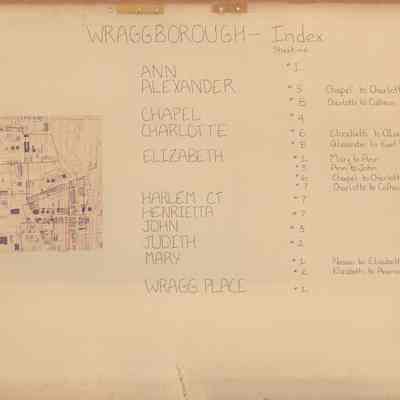 WRAGGBOROUGH — Index
Sheet no.
ANN #1
ALEXANDER #3 Chapel to Charlott
#8 Charlotte to Calhoun
CHAPEL #4
CHARLOTTE #6 Elizabeth to
#8 Alexander to East
ELIZABETH #1 Mary to Ann
#3 Ann to John
Chapel to Charlott
#7 Charlotte to Calho
HARLEM CT #7
HENRIETTA #7
JOHN #3
JUDITH #2
MARY #1 Nassau to Elizabeth
#2 Elizabeth to
WRAGG PLACE #1